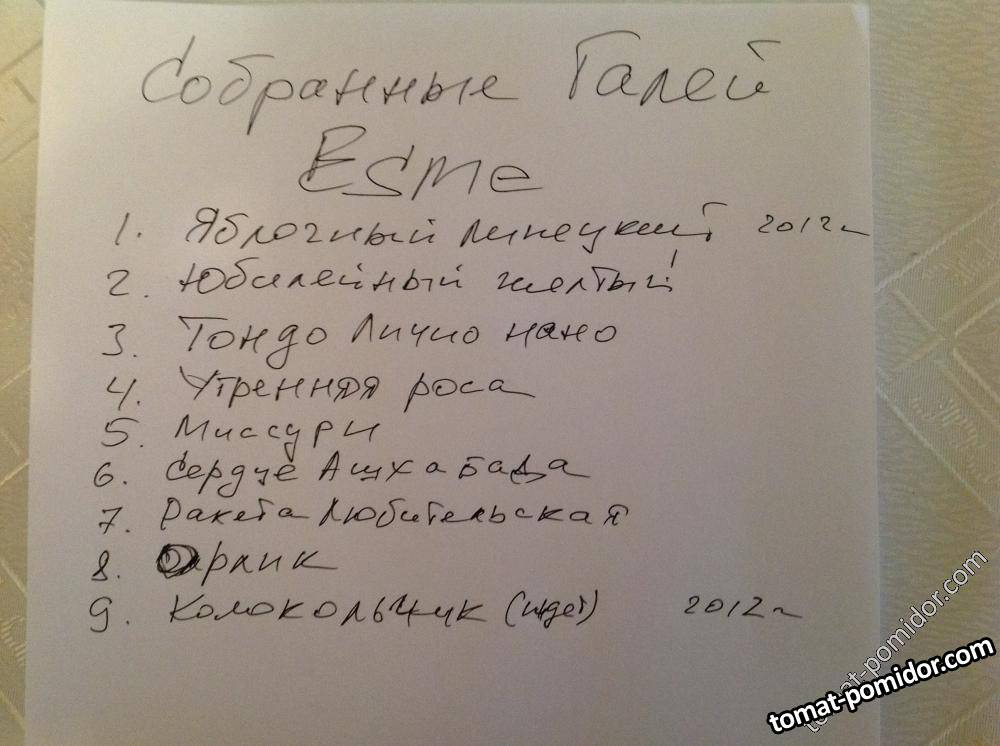 Собранные Галей
Esme
1. Яблочный Липецкий 2012г
2. Юбилейный желтый!
3. Тондо Личио нано
4. Утренняя роса
5. Миссури
6. Сердце Ашхабада
7. Ракета Любительская
8. Орлик
9. Колокольчик 2012г
tomat-pomidor.com
tomat-pomidor.com